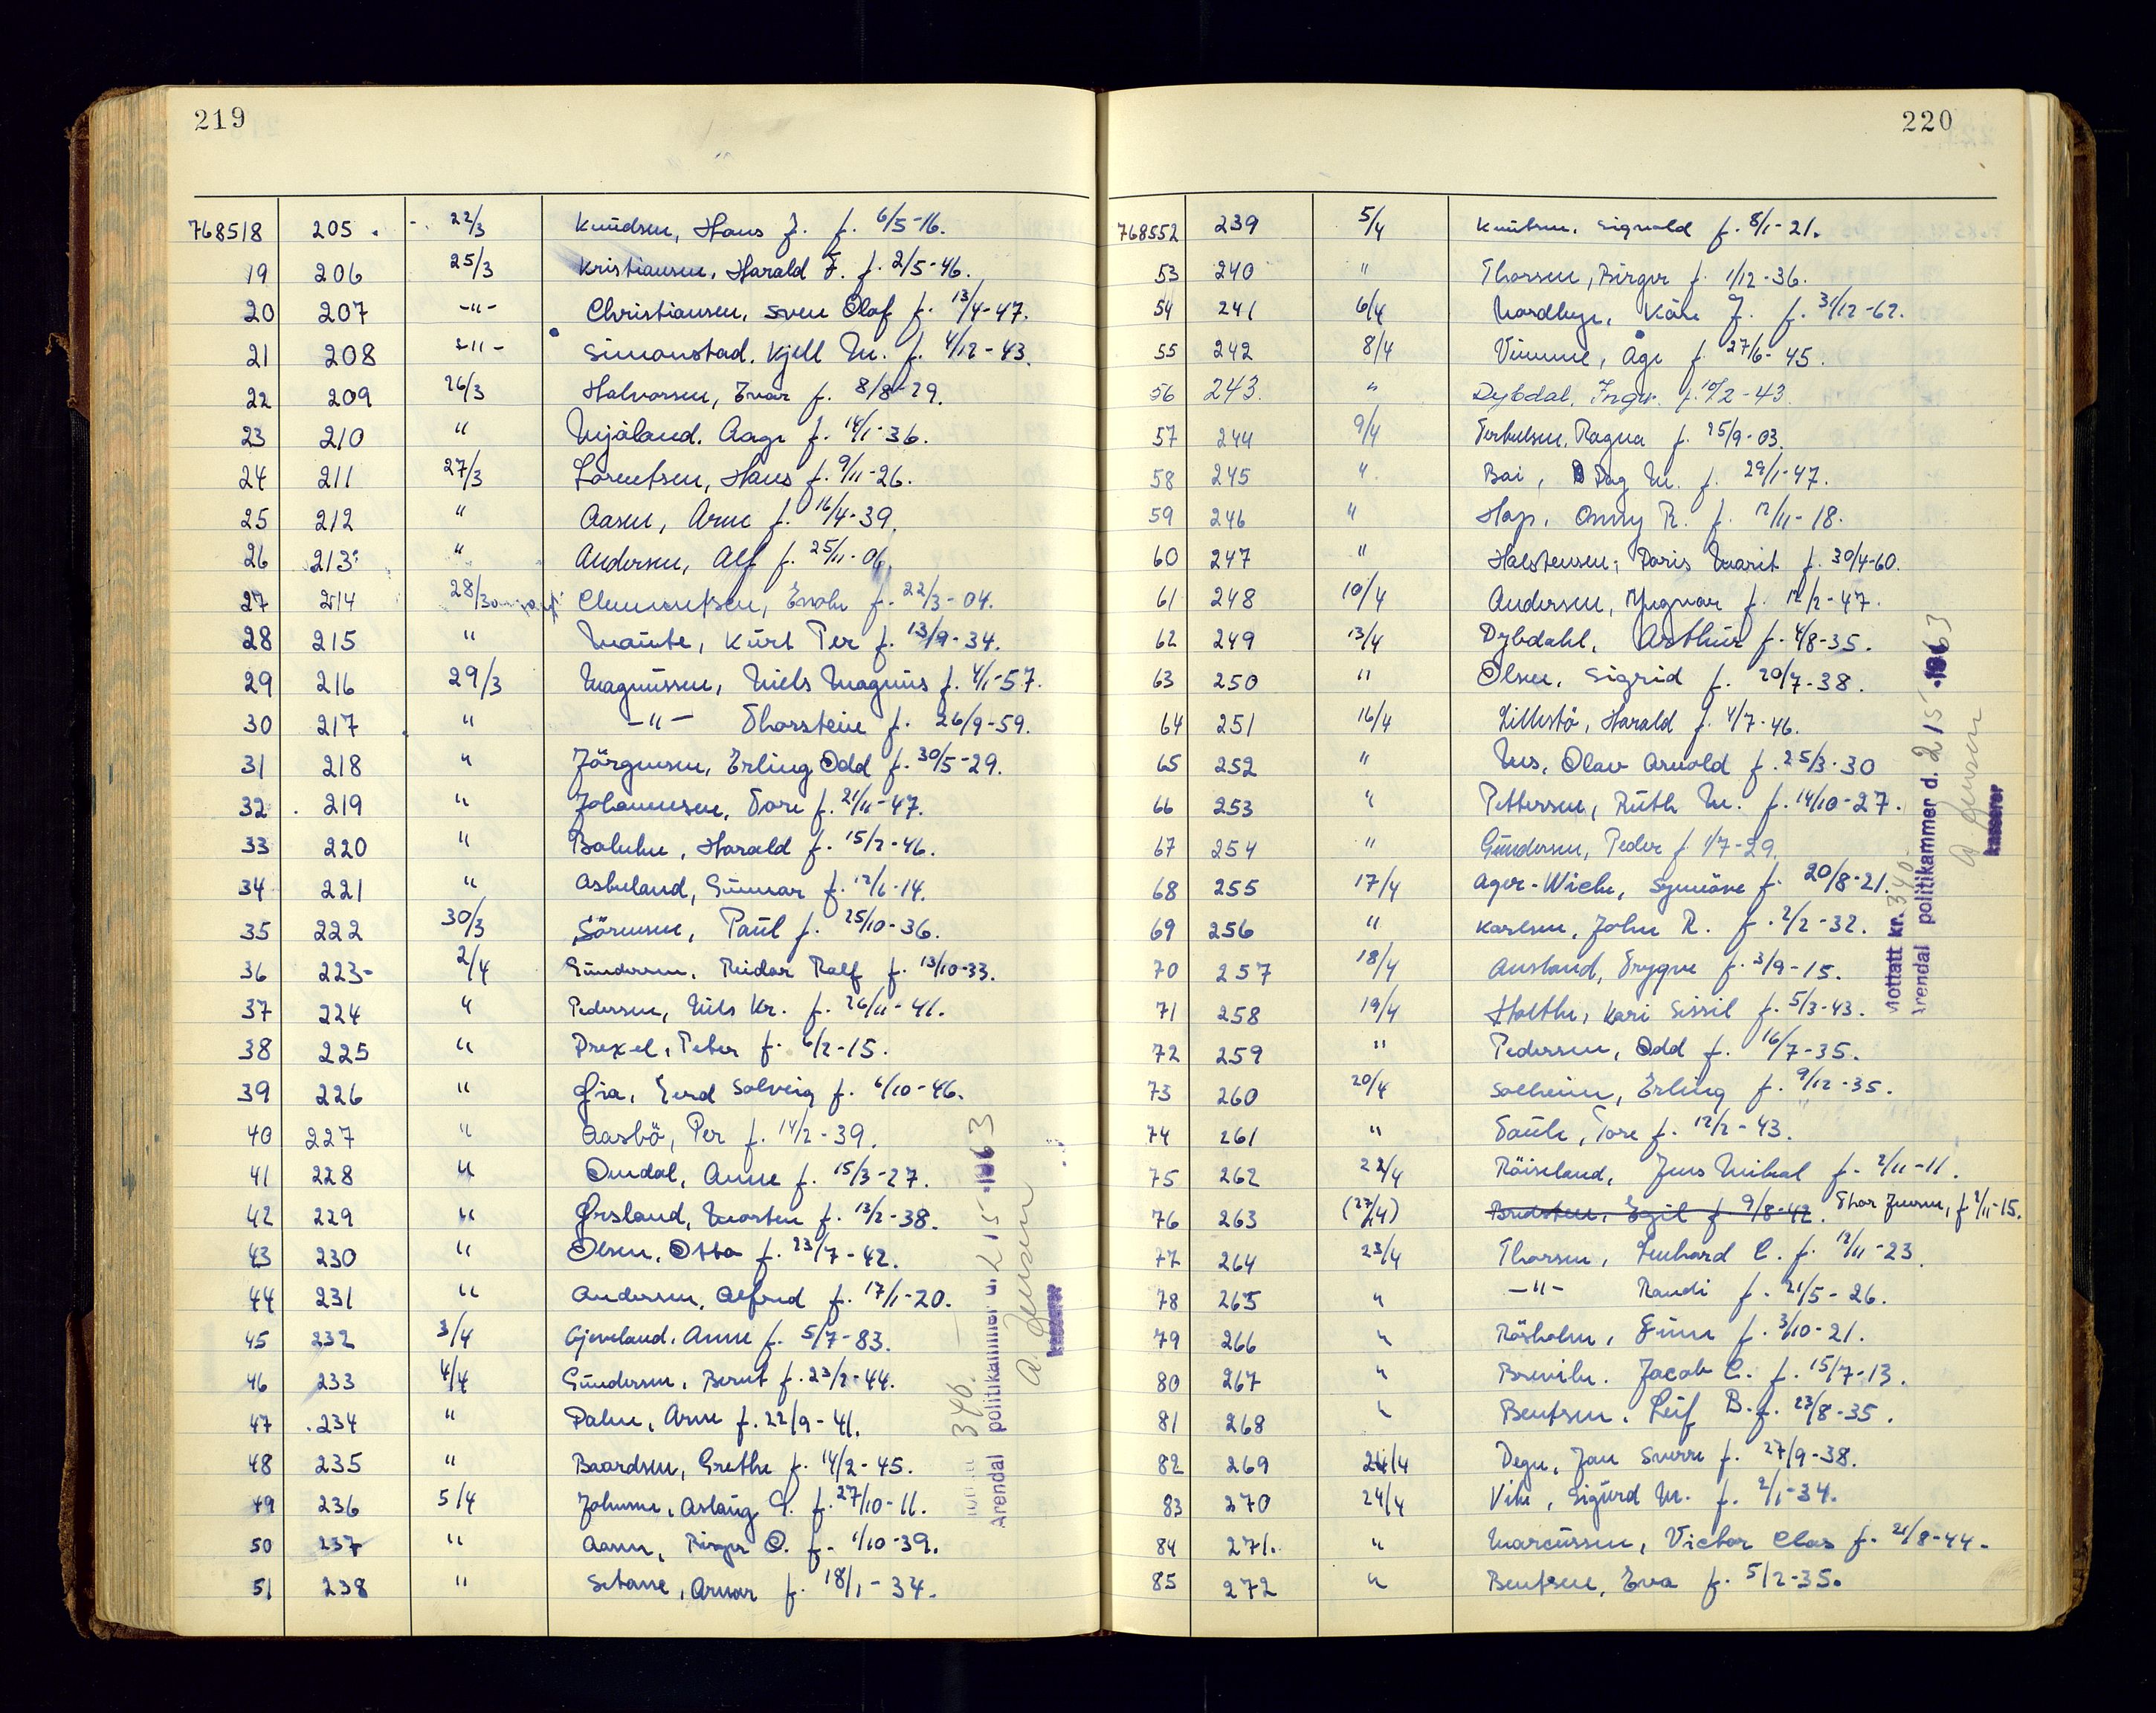 219
768518 205. - 22/3 Knudsen, Hans J. f. 6/5-16.
19 206 25/3 Kristiansen, Harald F. f. 2/5-46.
20 207 -"- Christiansen, Sven Olaf f. 13/4-47.
21 208 -"- Simonstad, Kjell M. f. 4/12-43.
22 209 26/3 Halvorsen, Evar f. 8/8-29.
23 210 " Mjåland, Aage f. 14/1-36.
24 211 27/3 Lorentsen, Hans f. 9/11-26.
25 212 " Aasen, Arne f. 16/4-39.
26 213 " Andersen, Alf f. 25/11-06.
27 214 28/3 Clemmetsen, f. 22/3-04.
28 215 " Maute, Kurt Per f. 13/9-34.
29 216 29/3 Magnussen, Niels Magnus f. 4/1-57.
30 217 " -"- Thorstein f. 26/9-59.
31 218 " Jörgensen, Erling Odd f. 30/5-29.
32. 219 " Johannesen, Tore f. 21/11-47.
33 220 " Harald f. 15/2-46.
34 221 " Askeland, Gunnar f. 12/6-14.
35 222 30/3 Sörensen, Paul f. 25/10-36.
36 223- 2/4 Gundersen, Reidar Ralf f. 13/10-33.
37 224 " Pedersen, Nils Kr. f. 26/11-41.
38 225 " Drexel, Peter f. 6/2-15.
39 226 " Gerd Solveig f. 6/10-46.
40 227 " Aasbö, Per f. 14/2-39.
41 228 " Omdal, Anne f. 15/3-27.
42 229 " Morten f. 13/2-38.
43 230 " Olsen, Otto f. 23/7-42.
44 231 " Andersen, Alfred f. 17/1-20.
45 232 3/4 Gjeveland, Anne f. 5/7-83.
46 233 4/4 Gundersen, Bernt f. 23/2-44.
47 .234 " Palm, Arne f. 22/9-41.
48 235 " Baardsen, Grethe f. 14/2-45.
49 236 5/4 Johnsen, Aslaug G. f. 27/10-11.
50 237 " Aasen, Birger O. f. 1/10-39.
51 238 " Arnar f. 18/1-34.
340.-
Arendal politikammer d. 2/5-1963
A. Jensen
kasserer
220
768552 239 5/4 Knutsen, Sigvald f. 8/1-21.
53 240 " Thorsen, Birger f. 1/12-36.
54 241 6/4 Kåre J. f. 31/12-62.
55 242 8/4 Vimme, Åge f. 27/6-45.
56 243. " Dybdal, Inger f. 10/2-43.
57 244 9/4 Terkelsen, Ragna f. 25/9-03.
58 245 " Bai, Dag M. f. 29/1-47.
59 246 " Hop, Conny R. f. 12/11-18.
60 247 " Halstensen, Doris Marit f. 30/4-60.
61 248 10/4 Andersen, Yngvar f. 12/2-47.
62 249 13/4 Dybdahl, Arthur f. 4/8-35.
63 250 " Olsen, Sigrid f. 20/7-38.
64 251 16/4 Lillestö, Harald f. 4/7-46.
65 252 " Nes, Olav Arnold f. 25/3-30
66 253 " Pettersen, Ruth M. f. 14/10-27.
67 254 " Gundersen, Peder f. 1/7-29.
68 255 17/4 Ager-Wiche, Synnöve f. 20/8-21.
69 256 " Karlsen, John R. f. 2/2-32.
70 257 18/4 Ausland, Trygve f. 3/9-15.
71 258 19/4 Holthe, Kari Sissil f. 5/3-43.
72 259 " Pedersen, Odd f. 16/7-35.
73 260 20/4 Solheim, Erling f. 9/12-35.
74 261 " Tore f. 12/2-43.
75 262 22/4 Röiseland, Jens Mikal f. 2/11-11.
76 263 (27/4) Egil f. 9/8-42. Thor Jensen, f. 2/11-15.
77 264 23/4 Thorsen, Lenhard C. f. 13/11-23.
78 265 " -"- Randi f. 21/5-26.
79 266 " Råsholm, Finn f. 3/10-21.
80 267 " Brevik, Jacob C. f. 15/7-13.
81 268 " Bentsen, Leif B. f. 23/8-35.
82 269 24/4 Degn, Jan Sverre f. 27/9-38.
83 270 24/4 Vike, Sigurd M. f. 2/1-34.
84 271. " Marcussen, Victor Clas f. 21/8-44.
85 272 " Bentsen, Eva f. 5/2-35.
Mottatt kr. 340.-
Arendal politikammer d. 2/5-1963
A. Jensen
kasserer